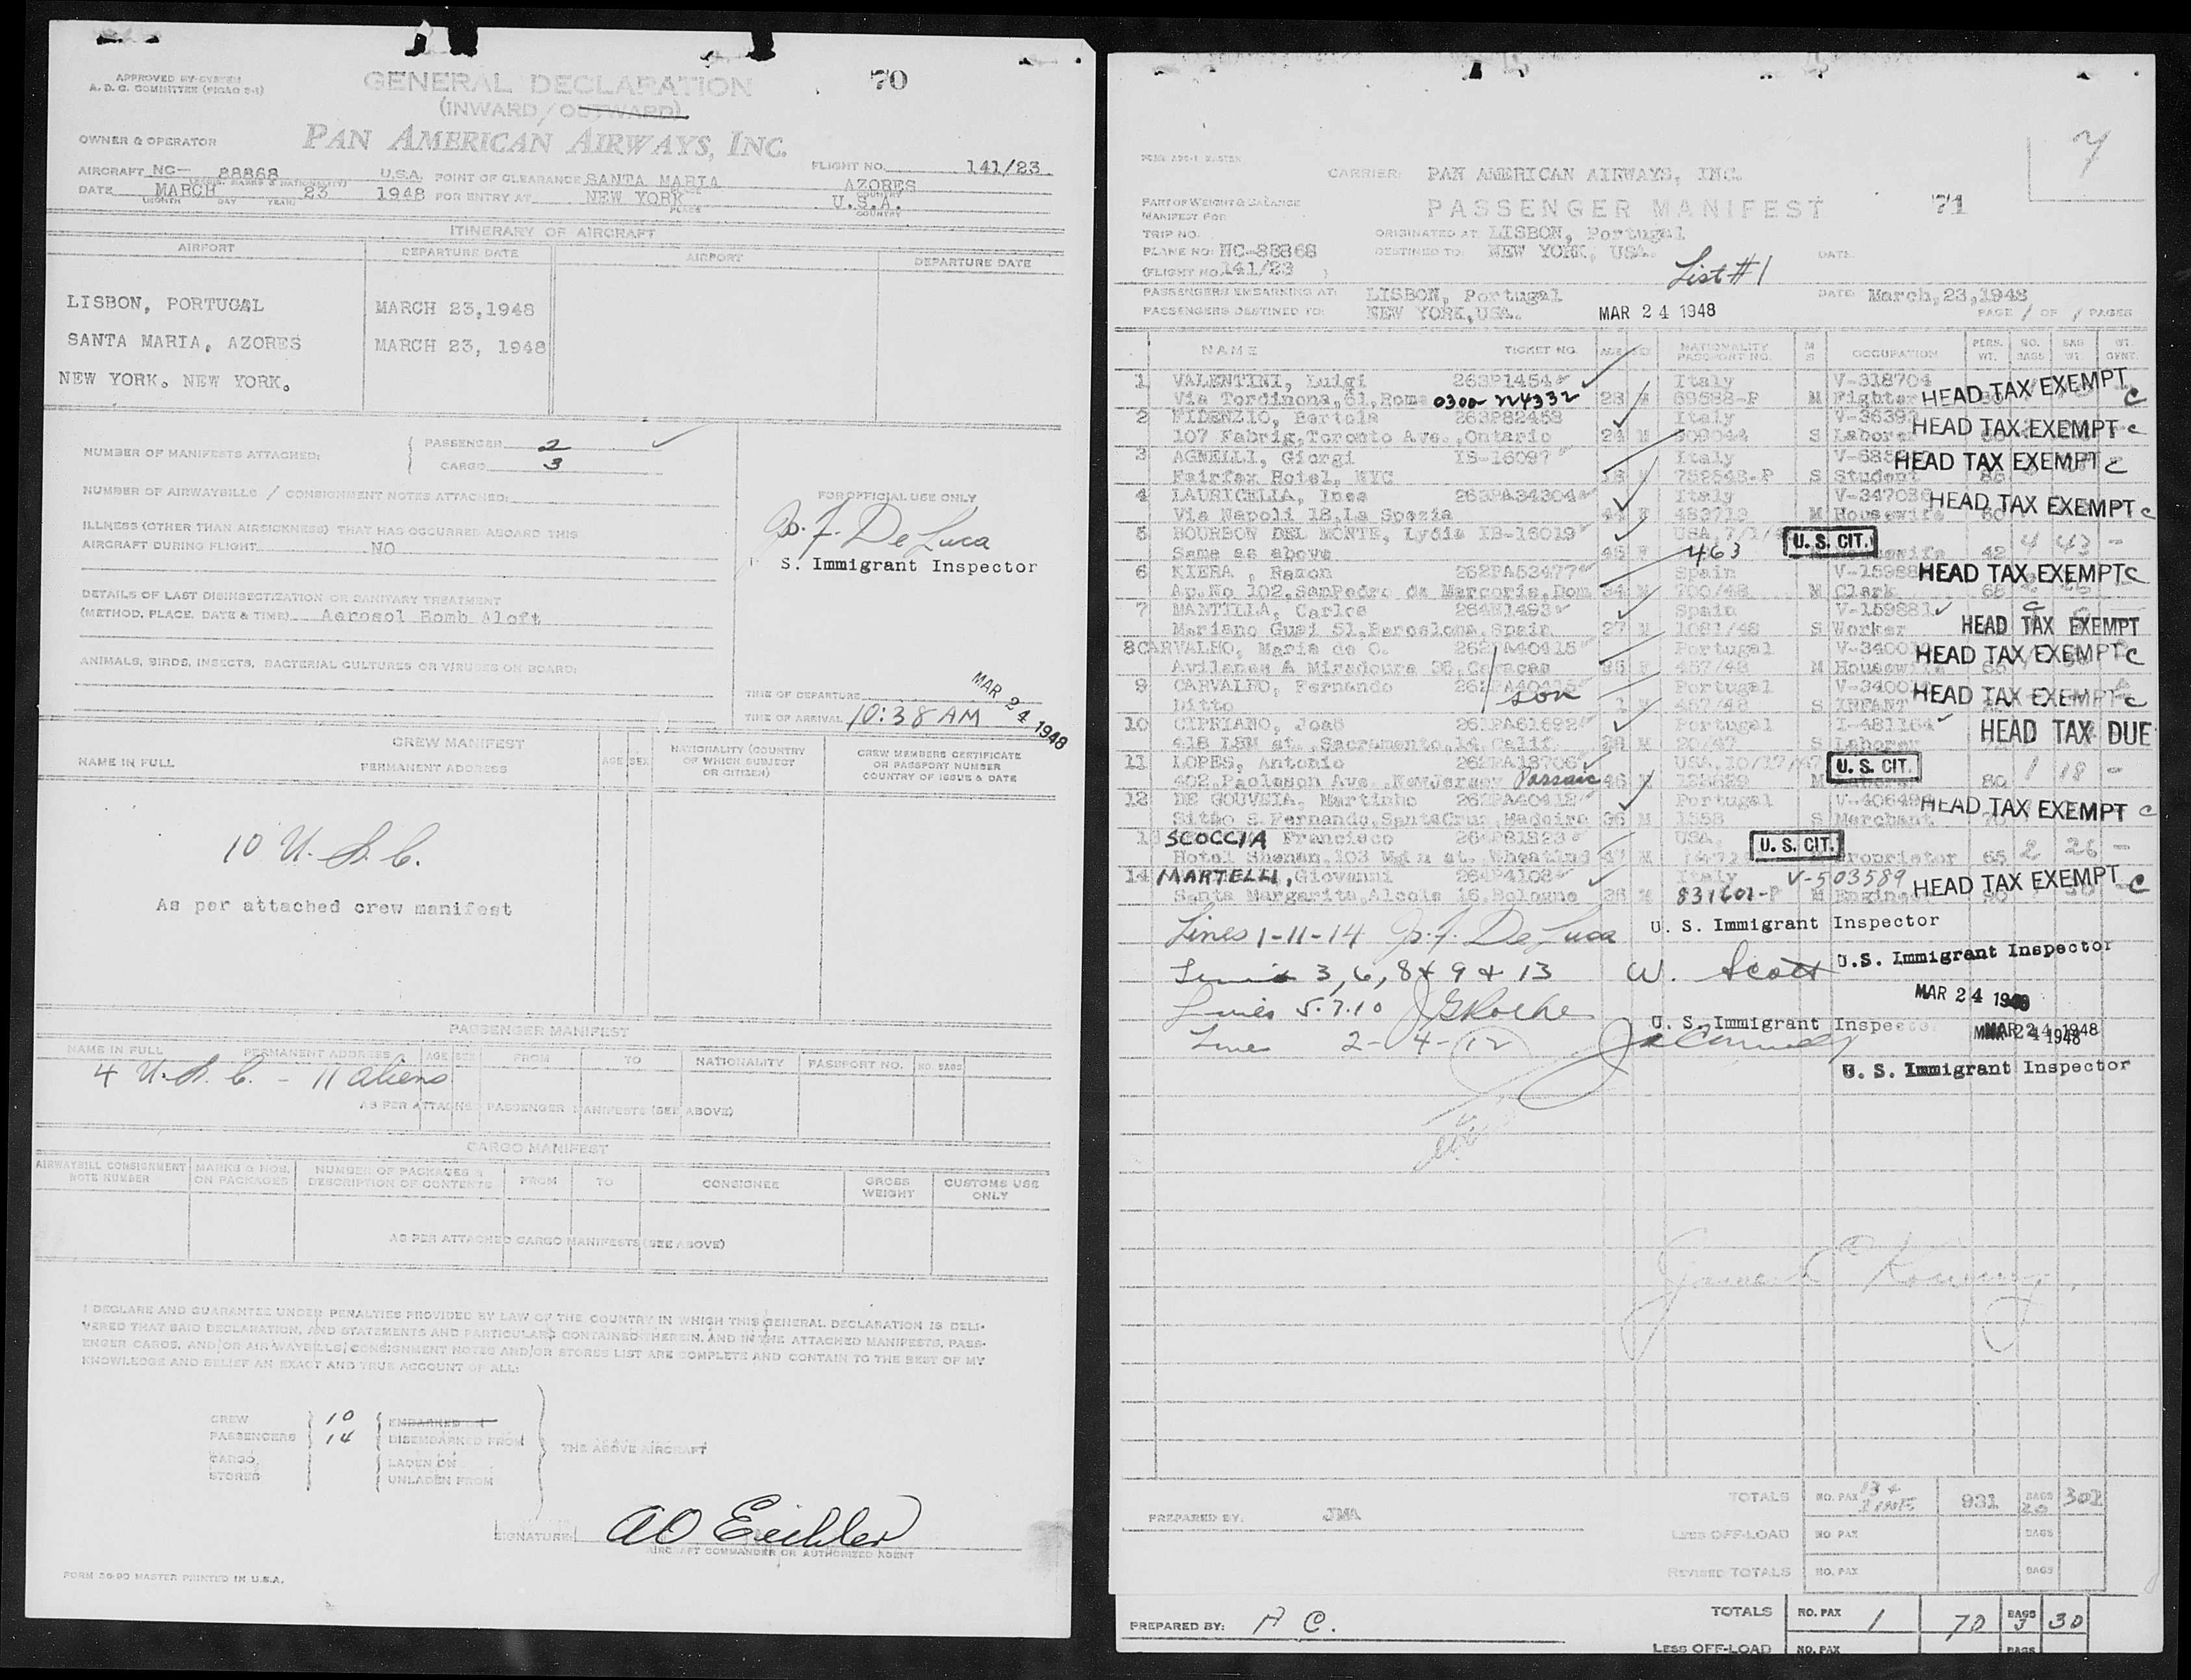 APPROVED BY
A. D. C. COMMITTEE (PICAO 2-1)
GENERAL DECLARATION
(INWARD/OUTWARD)
70
OWNER & OPERATOR
PAN AMERICAN AIRWAYS, INC.
AIRCRAFT NC- 88868 U.S.A. POINT OF CLEARANCE SANTA MARIA AZORES FLIGHT NO. 141/23
(MARKS & NATIONALITY) PLACE COUNTRY
DATE MARCH 23 1948 FOR ENTRY AT NEW YORK U.S.A.
MONTH DAY YEAR PLACE COUNTRY
ITINERARY OF AIRCRAFT
AIRPORT DEPARTURE DATE AIRPORT DEPARTURE DATE
LISBON, PORTUGAL MARCH 23,1948
SANTA MARIA, AZORES MARCH 23, 1948
NEW YORK. NEW YORK.
NUMBER OF MANIFESTS ATTACHED: PASSENGER 2
CARGO 3
NUMBER OF AIRWAYBILLS / CONSIGNMENT NOTES ATTACHED:
ILLNESS (OTHER THAN AIRSICKNESS) THAT HAS OCCURRED ABOARD THIS
AIRCRAFT DURING FLIGHT NO
DETAILS OF LAST DISINSECTIZATION OR SANITARY TREATMENT
(METHOD, PLACE, DATE & TIME) Aerosol Bomb Aloft
ANIMALS, BIRDS, INSECTS, BACTERIAL CULTURES OR VIRUSES ON BOARD:
FOR OFFICIAL USE ONLY
Jo. F. De Luca
S. Immigrant Inspector
TIME OF DEPARTURE
TIME OF ARRIVAL 10:38 AM
MAR 24 1948
CREW MANIFEST
NAME IN FULL PERMANENT ADDRESS AGE SEX NATIONALITY (COUNTRY OF WHICH SUBJECT OR CITIZEN) CREW MEMBERS CERTIFICATE OR PASSPORT NUMBER COUNTRY OF ISSUE & DATE
10 U. S. C.
As per attached crew manifest
PASSENGER MANIFEST
NAME IN FULL PERMANENT ADDRESS AGE SEX FROM TO NATIONALITY PASSPORT NO. NO. BAGS
4 U. S. C. - 11 aliens
AS PER ATTACHED PASSENGER MANIFESTS (SEE ABOVE)
CARGO MANIFEST
AIRWAYBILL CONSIGNMENT NOTE NUMBER MARKS & NOS. ON PACKAGES NUMBER OF PACKAGES & DESCRIPTION OF CONTENTS FROM TO CONSIGNEE GROSS WEIGHT CUSTOMS USE ONLY
AS PER ATTACHED CARGO MANIFESTS (SEE ABOVE)
I DECLARE AND GUARANTEE UNDER PENALTIES PROVIDED BY LAW OF THE COUNTRY IN WHICH THIS GENERAL DECLARATION IS DELI-
VERED THAT SAID DECLARATION, AND STATEMENTS AND PARTICULARS CONTAINED THEREIN, AND IN THE ATTACHED MANIFESTS, PASS-
ENGER CARDS, AND/OR AIR WAYBILLS/ CONSIGNMENT NOTES AND/OR STORES LIST ARE COMPLETE AND CONTAIN TO THE BEST OF MY
KNOWLEDGE AND BELIEF AN EXACT AND TRUE ACCOUNT OF ALL:
CREW 10 EMBARKED
PASSENGERS 14 DISEMBARKED FROM THE ABOVE AIRCRAFT
CARGO, LADEN ON
STORES UNLADEN FROM
SIGNATURE: AO Eichler
AIRCRAFT COMMANDER OR AUTHORIZED AGENT
FORM 20-90 MASTER PRINTED IN U.S.A.
7
CARRIER: PAN AMERICAN AIRWAYS, INC.
PART OF WEIGHT & BALANCE
MANIFEST FOR
PASSENGER MANIFEST 71
TRIP NO. ORIGINATED AT: LISBON, Portugal
PLANE NO: NC-88868 DESTINED TO: NEW YORK, USA. DATE
(FLIGHT NO. 141/23 )
List #1
PASSENGERS EMBARKING AT: LISBON, Portugal DATE: March,23,1948
PASSENGERS DESTINED TO: NEW YORK,USA. MAR 24 1948 PAGE / OF / PAGES
NAME TICKET NO. AGE SEX NATIONALITY PASSPORT NO. M S OCCUPATION PERS. WT. NO. BAGS BAG WT. WT. OVWT.
1 VALENTINI, Luigi 263P1454 Italy V-318704
Via Tordinona,61,Rome 0300-224332 28 M 69588-P M Fighter HEAD TAX EXEMPT C
2 FIDENZIO, Bertola 263P82458 Italy
107 Fabrig,Toronto Ave.,Ontario 24 M 709044 S Laborer HEAD TAX EXEMPT C
3 AGNELLI, Giorgi IS-16097 Italy
Fairfax Hotel, NYC 18 M 752543-P S Student HEAD TAX EXEMPT C
4 LAURICELLA, Ines 263PA34304 Italy
Via Napoli 18,La Spezia 44 F 483713 M Housewife HEAD TAX EXEMPT C
5 BOURBON DEL MONTE, Lydia IS-16019 USA,7/1/4 U. S. CIT.
Same as above 45 F 463 42 4 43 -
6 KIERA , Ramon 262PA53477 Spain
Ap.No 102,SanPedro de Marcoris,Dom 34 M 700/48 M Clerk 68 HEAD TAX EXEMPT C
7 MANTILLA, Carlos 264N1493 Spain V-159881
Mariano Gusi 51,Barcelona,Spain 27 M 1081/48 S Worker HEAD TAX EXEMPT
8 CARVALHO, Maria de O. 262PA40415 Portugal
Avilanes A Miradoura 36,Caracas 35 F 457/48 M Housewife HEAD TAX EXEMPT C
9 CARVALHO, Fernando son Portugal
Ditto 1 M 457/48 S INFANT HEAD TAX EXEMPT C
10 CIPRIANO, Joaõ 261PA61692 Portugal I-481164
418 LSM st.,Sacramento,14,Calif. 28 M 20/47 S Laborer HEAD TAX DUE
11 LOPES, Antonio 262PA18706 USA,10/17/47 U. S. CIT.
402,Paoleson Ave.,NewJersey Passaic 46 M 128699 M 80 1 18 -
12 DE GOUVEIA, Martinho 262PA40412 Portugal V-406494
Sitão S.Fernando,SantaCruz,Madeira 36 M 1558 S Merchant HEAD TAX EXEMPT C
13 SCOCCIA Francisco 264P81823 USA, U. S. CIT.
Hotel Shenan,103 Main st. Wheatlnd 47 M Proprietor 65 2 26 -
14 MARTELLI, Giovanni 264P4108 Italy V-503589
Santa Margarita,Alcole 16,Bologne 36 M 831601-P M Engineer HEAD TAX EXEMPT C
Lines 1-11-14 Jo. F. De Luca U. S. Immigrant Inspector
Lines 3, 6, 8 & 9 & 13 W. Scott U.S. Immigrant Inspector
MAR 24 1948
Lines 5.7.10 JG Roche U. S. Immigrant Inspector
Line 2- 4-12 MAR 24 1948
U. S. Immigrant Inspector
PREPARED BY: JMA
TOTALS NO. PAX 13 + 1 INF 931 BAGS 20 302
LESS OFF-LOAD NO PAX BAGS
REVISED TOTALS NO. PAX BAGS
PREPARED BY: A C.
TOTALS NO. PAX 1 70 BAGS 3 30
LESS OFF-LOAD NO. PAX BAGS